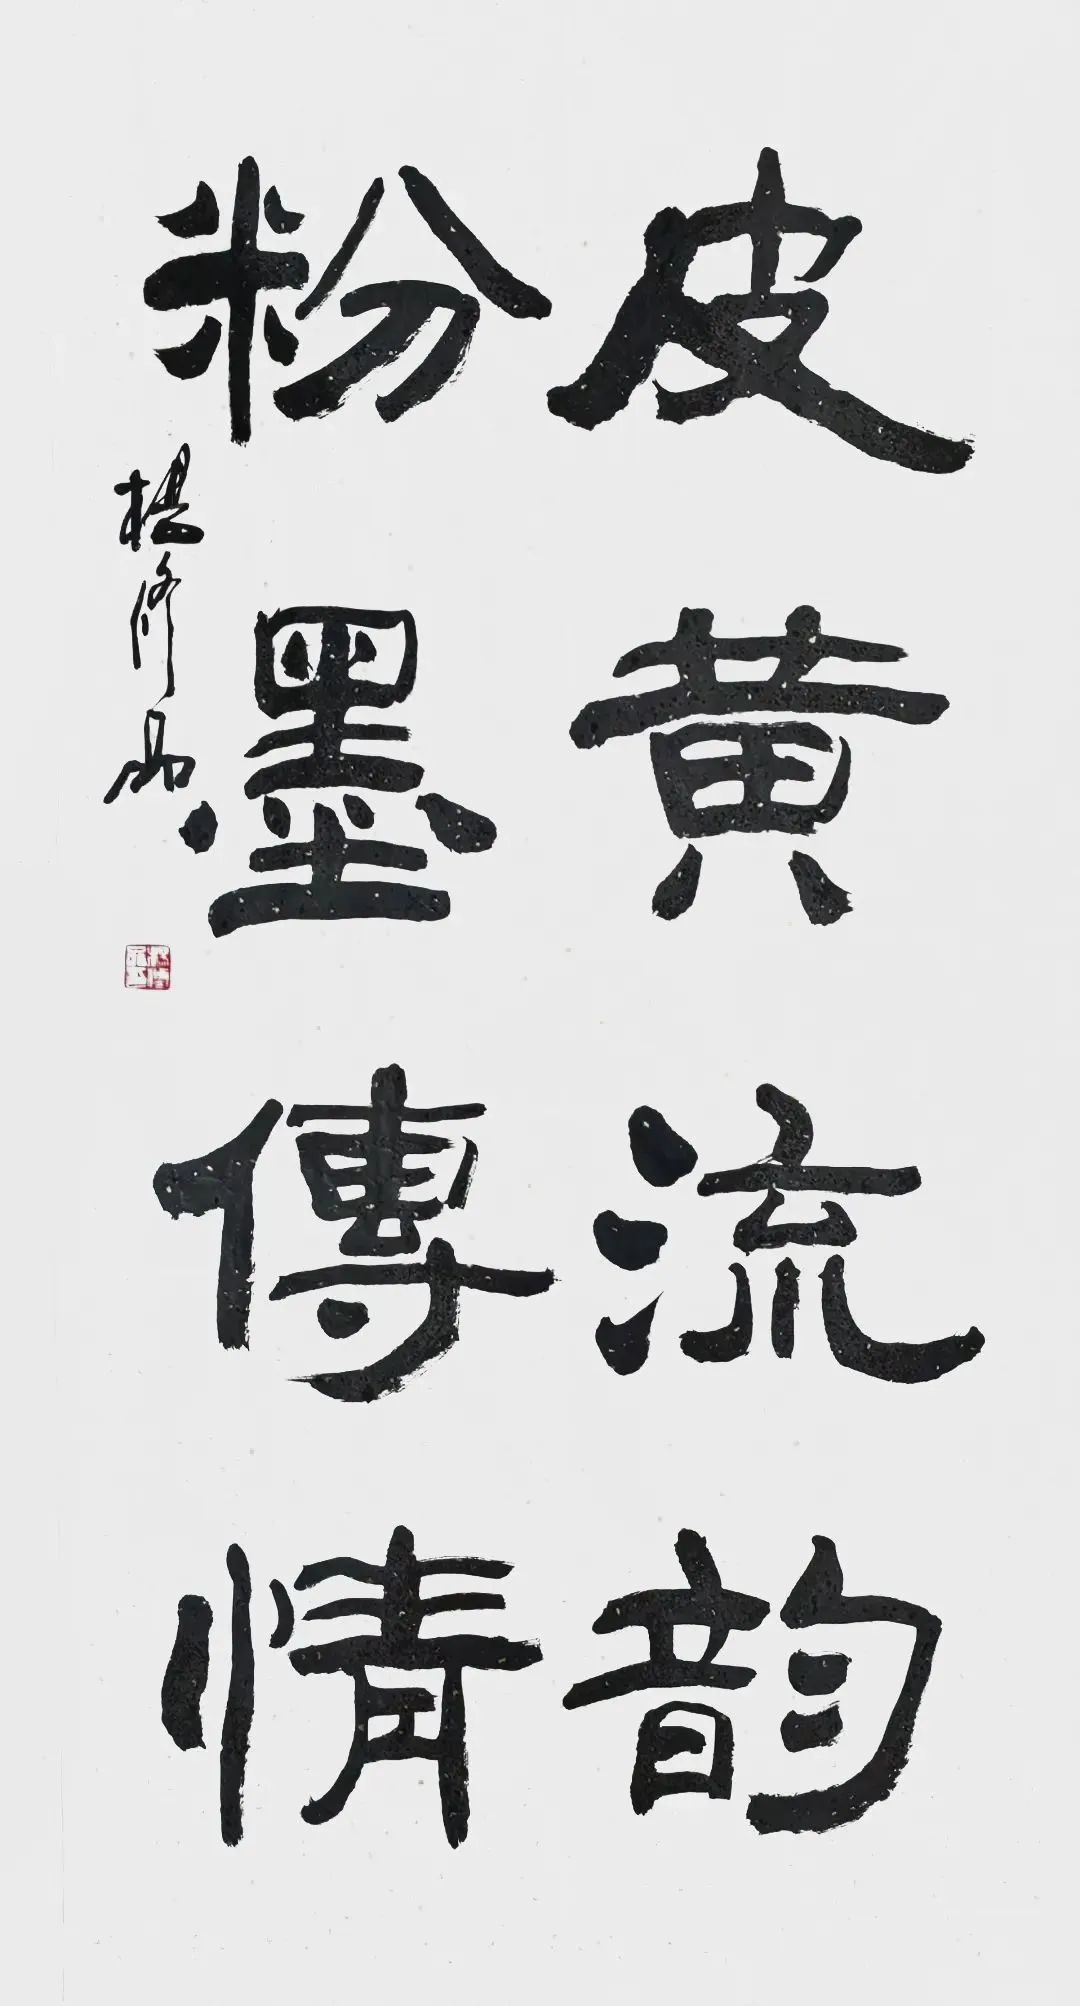 皮黄流韵
粉墨傳情
楊修品